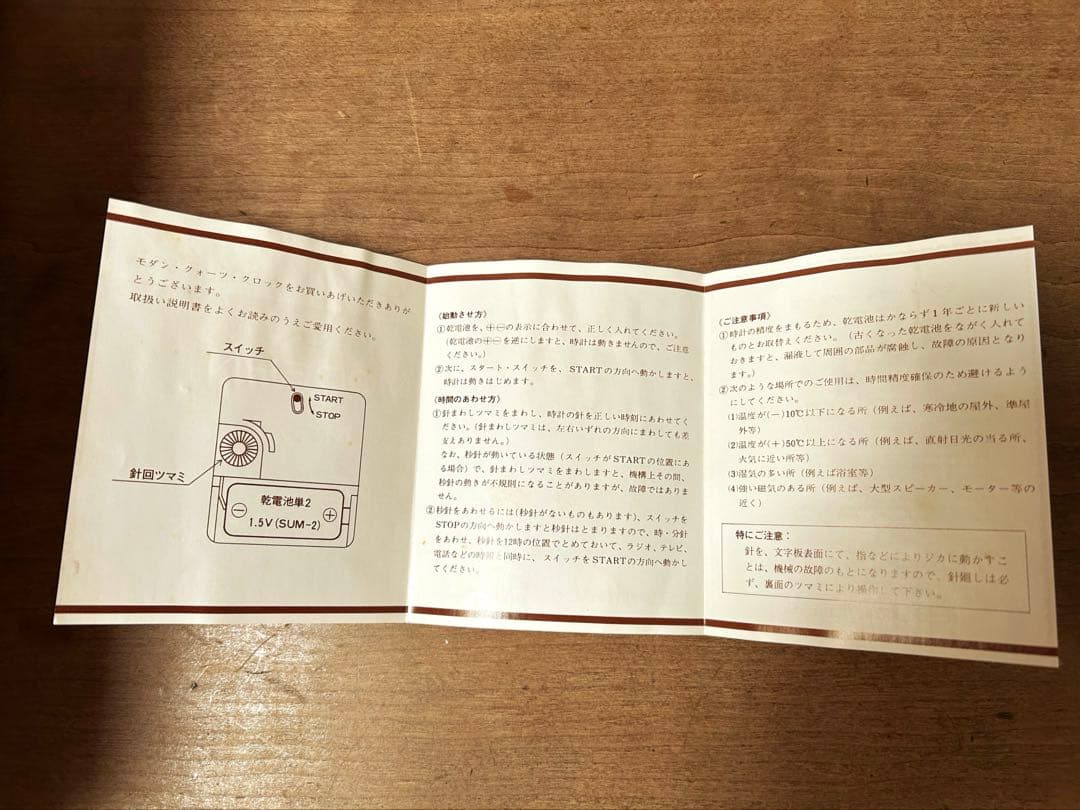 モダン・クォーツ・クロックをお買いあげいただきありが
とうございます。
取扱い説明書をよくお読みのうえご愛用ください。
スイッチ
START
STOP
針回ツマミ
乾電池単2
⊖ ⊕
1.5V(SUM-2)
〈始動させ方〉
①乾電池を、⊕⊖の表示に合わせて、正しく入れてください。
(乾電池の⊕⊖を逆にしますと、時計は動きませんので、ご注意
ください。)
②次に、スタート・スイッチを、STARTの方向へ動かしますと、
時計は動きはじめます。
〈時間のあわせ方〉
①針まわしツマミをまわし、時計の針を正しい時刻にあわせてく
ださい。(針まわしツマミは、左右いずれの方向にまわしても差
支えありません。)
なお、秒針が動いている状態(スイッチがSTARTの位置にあ
る場合)で、針まわしツマミをまわしますと、機構上その間、
秒針の動きが不規則になることがありますが、故障ではありませ
ん。
②秒針をあわせるには(秒針がないものもあります)、スイッチを
STOPの方向へ動かしますと秒針はとまりますので、時・分針
をあわせ、秒針を12時の位置でとめておいて、ラジオ、テレビ、
電話などの時報と同時に、スイッチをSTARTの方向へ動かし
てください。
〈ご注意事項〉
①時計の精度をまもるため、乾電池はかならず1年ごとに新しい
ものとお取替えください。(古くなった乾電池をながく入れて
おきますと、漏液して周囲の部品が腐蝕し、故障の原因となり
ます。)
②次のような場所でのご使用は、時間精度確保のため避けるよう
にしてください。
(1)温度が(－)10℃以下になる所(例えば、寒冷地の屋外、準屋
外等)
(2)温度が(＋)50℃以上になる所(例えば、直射日光の当る所、
火気に近い所等)
(3)湿気の多い所(例えば浴室等)
(4)強い磁気のある所(例えば、大型スピーカー、モーター等の
近く)
特にご注意：
針を、文字板表面にて、指などによりジカに動かすこ
とは、機械の故障のもとになりますので、針廻しは必
ず、裏面のツマミにより操作して下さい。